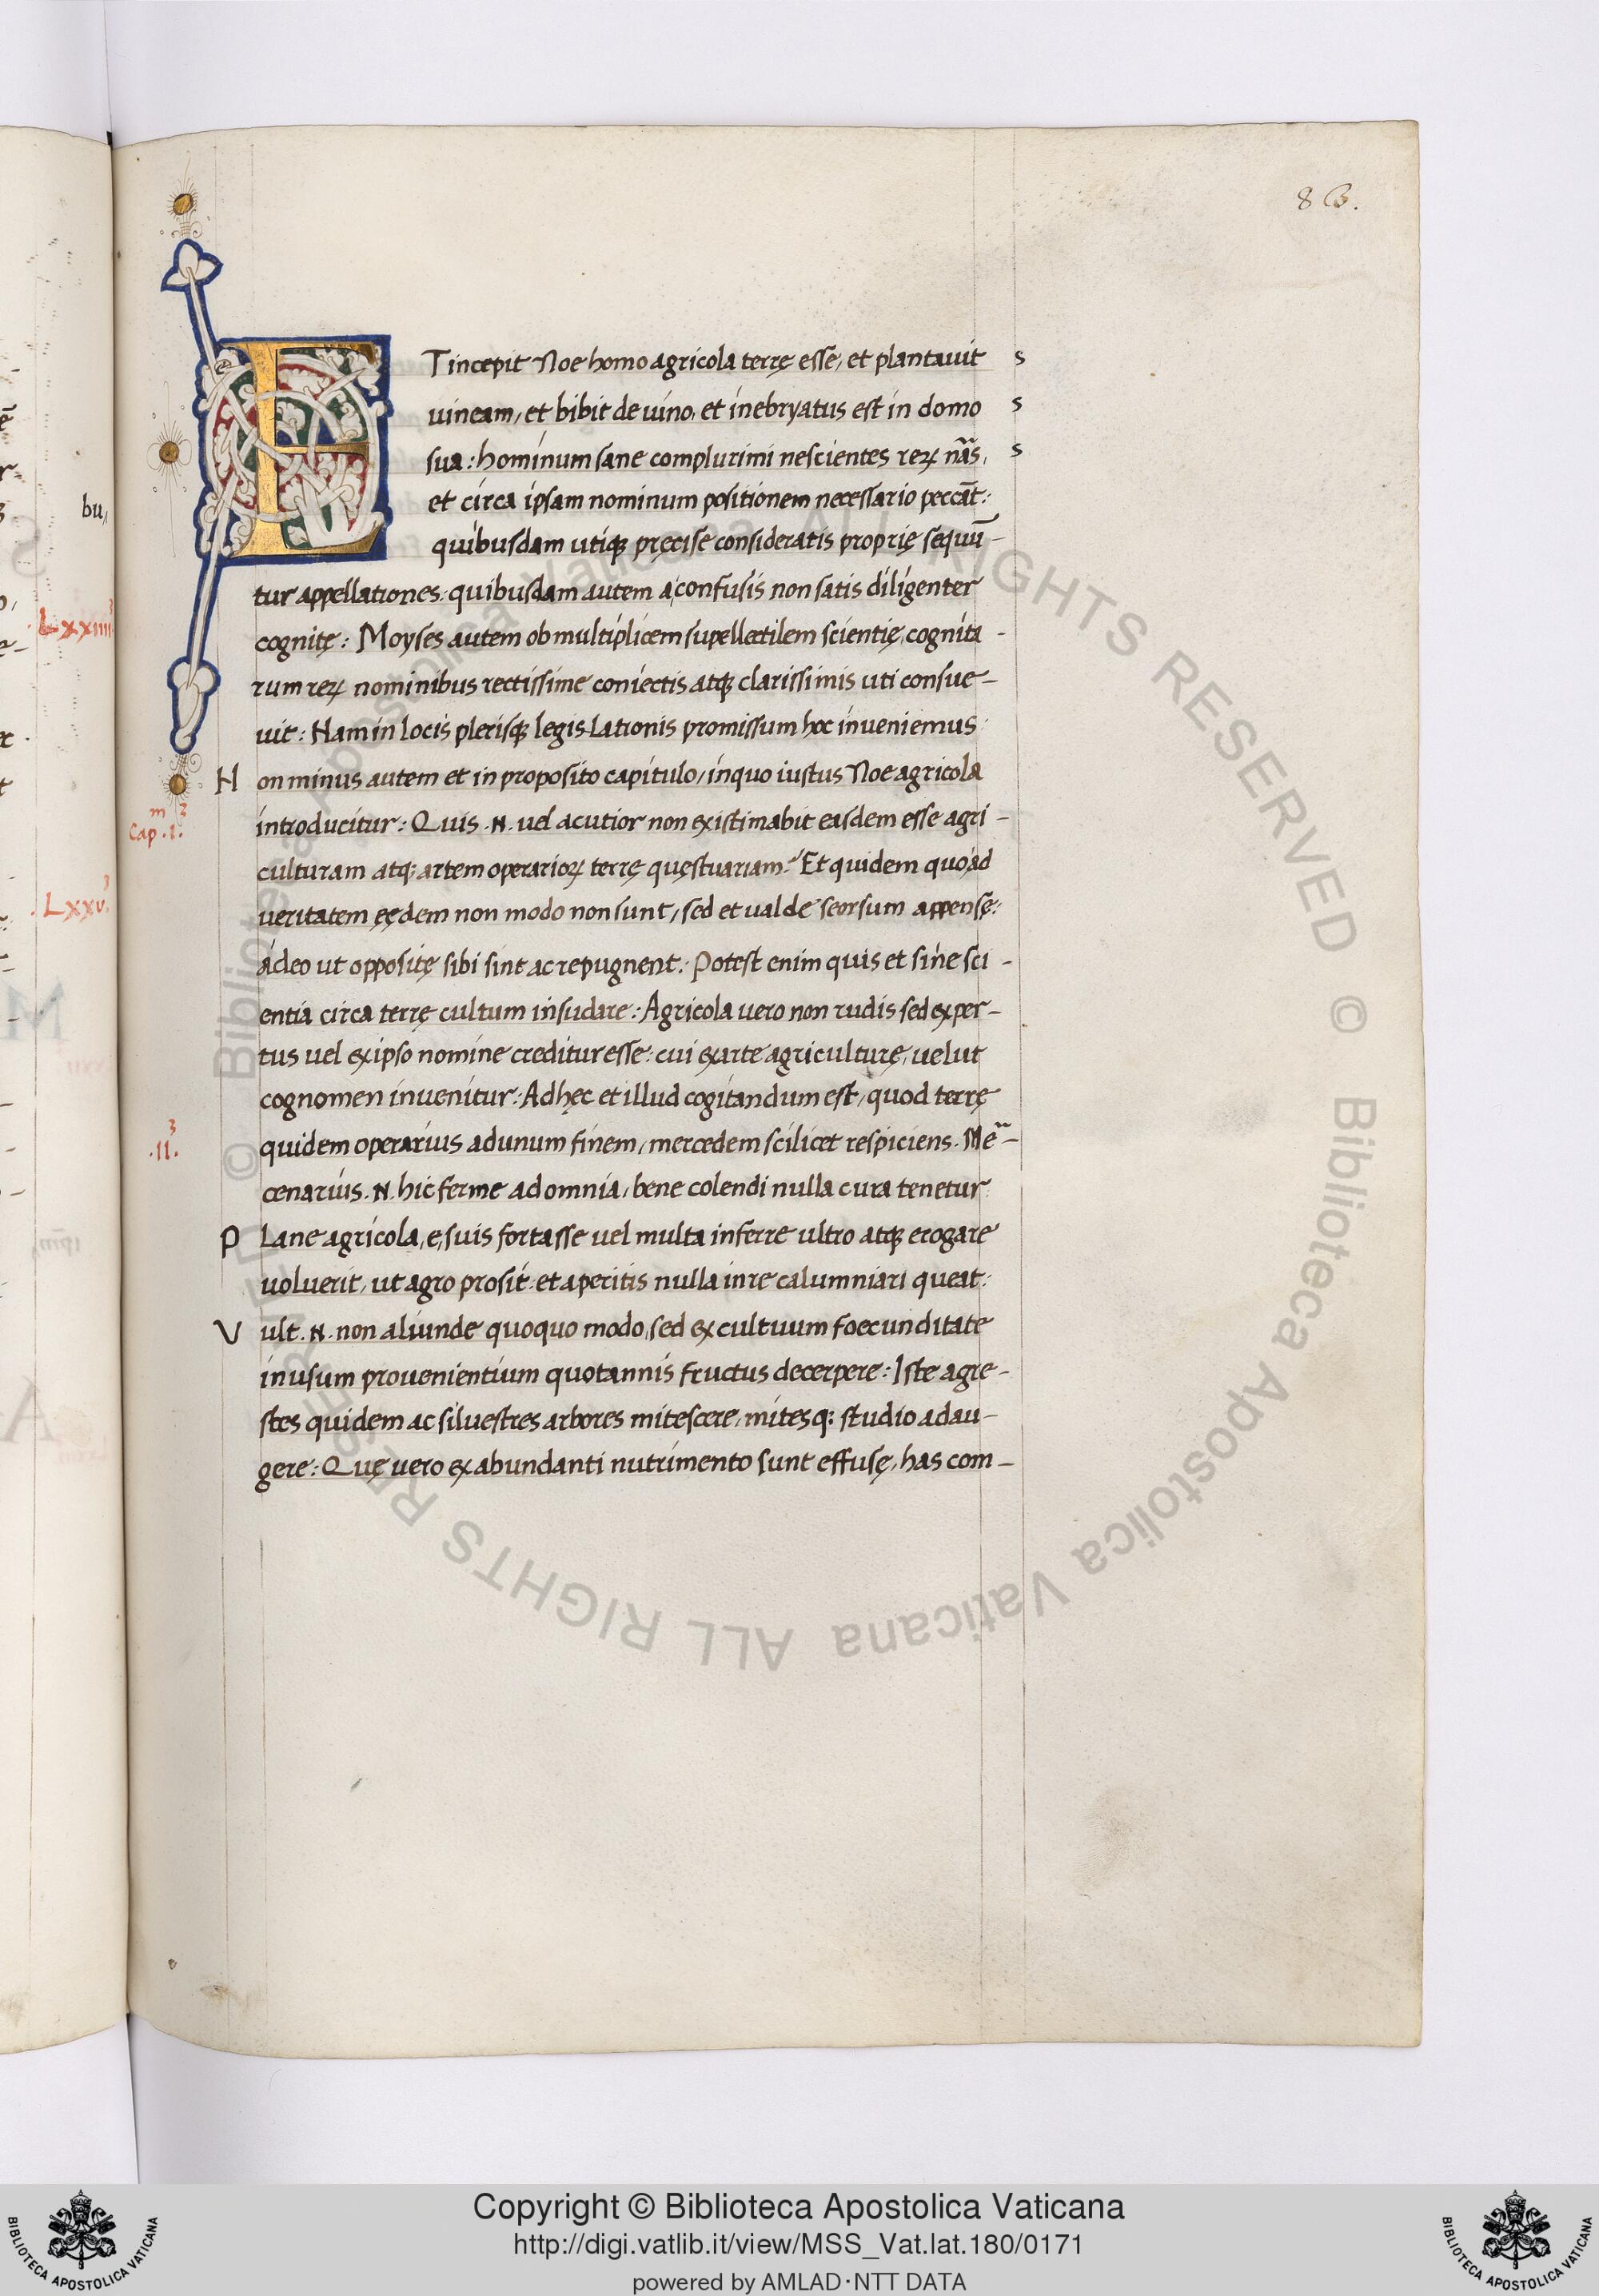 83.
ET incepit Noe homo agricola terrę esse, et plantauit s
uineam, et bibit de uino, et inebryatus est in domo s
sua: hominum sane complurimi nescientes reꝝ nãs, s
et circa ipsam nominum positionem necessario peccãt:
quibusdam utiqꝫ pręcise consideratis proprię sequũ-
tur appellationes: quibusdam autem a confusis non satis diligenter
cognitę: Moyses autem ob multiplicem supellectilem scientię, cognita-
rum reꝝ nominibus rectissime coniectis atqꝫ clarissimis uti consue-
uit: Nam in locis plerisqꝫ legis Lationis promissum hoc inueniemus:
Non minus autem et in proposito capitulo, in quo iustus Noe agricola
introducitur: Quis .N. uel acutior non existimabit easdem esse agri-
Cap .I.
culturam atqꝫ artem operarioꝝ terrę quęstuariam? Et quidem quoad
ueritatem eędem non modo non sunt, sed et ualde seorsum appensę:
adeo ut oppositę sibi sint ac repugnent: Potest enim quis et sine sci-
entia circa terrę cultum insudare: Agricola uero non rudis sed exper-
tus uel ex ipso nomine creditur esse: cui ex arte agriculturę, uelut
cognomen inuenitur: Ad hęc et illud cogitandum est, quod terrę
.II.
quidem operarius ad unum finem, mercedem scilicet respiciens. Me-
cenarius .N. hic ferme ad omnia, bene colendi nulla cura tenetur:
PLane agricola, e, suis fortasse uel multa inferre ultro atqꝫ erogare
uoluerit, ut agro prosit: et a peritis nulla in re calumniari queat:
Vult .N. non aliunde quoquo modo, sed ex cultuum foecunditate
in usum prouenientium quotannis fructus decerpere: Iste agre-
stes quidem ac siluestres arbores mitescere, mitesqꝫ studio adau-
gere: Quę uero ex abundanti nutrimento sunt effusę, has com-
bu,
Lxxiiii.
Lxxv.
© Biblioteca Apostolica Vaticana ALL RIGHTS RESERVED © Biblioteca Apostolica Vaticana ALL RIGHTS RESERVED
Copyright © Biblioteca Apostolica Vaticana
http://digi.vatlib.it/view/MSS_Vat.lat.180/0171
powered by AMLAD·NTT DATA
BIBLIOTECA APOSTOLICA VATICANA
BIBLIOTECA APOSTOLICA VATICANA